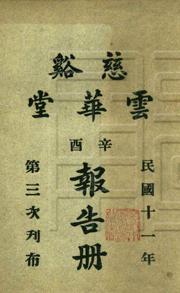 慈谿
雲華堂
民國十一年
辛酉
報告册
第三次刋布